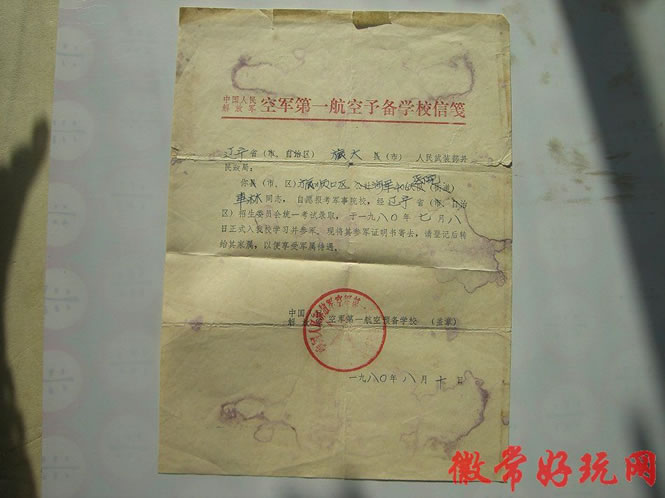 中国人民解放军 空军第一航空予备学校信笺
辽宁省（市、自治区） 旅大 县（市） 人民武装部并
民政局：
你县（市、区）旅顺口区
同志，自愿报考军事院校，经辽宁省（市、自治
区）招生委员会统一考试录取，于一九八〇年七月八
日正式入我校学习并参军。现将其参军证明书寄去，请登记后转
给其家属，以便享受军属待遇。
中国人民解放军 空军第一航空预备学校 （盖章）
一九八〇年八月十日
徽常好玩网